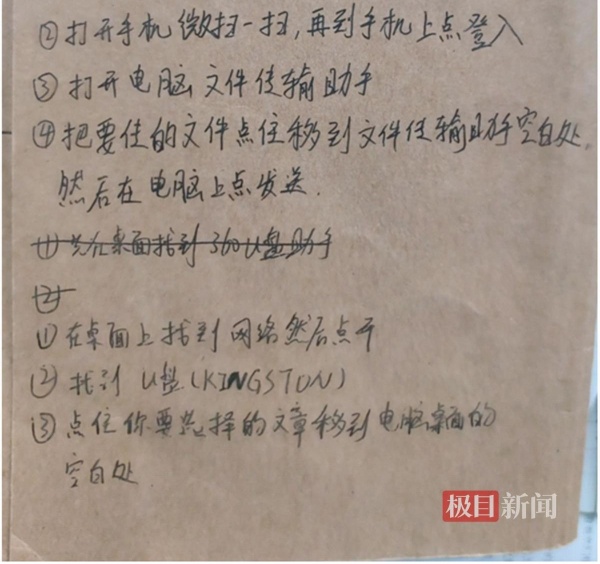 ②打开手机微扫一扫，再到手机上点登入
③打开电脑文件传输助手
④把要传的文件点住移到文件传输助手空白处，
然后在电脑上点发送．
①先在桌面找到360U盘助手
②
①在桌面上找到网络然后点开
②找到 U盘(KINGSTON)
③点住你要选择的文章移到电脑桌面的
空白处．
极目新闻